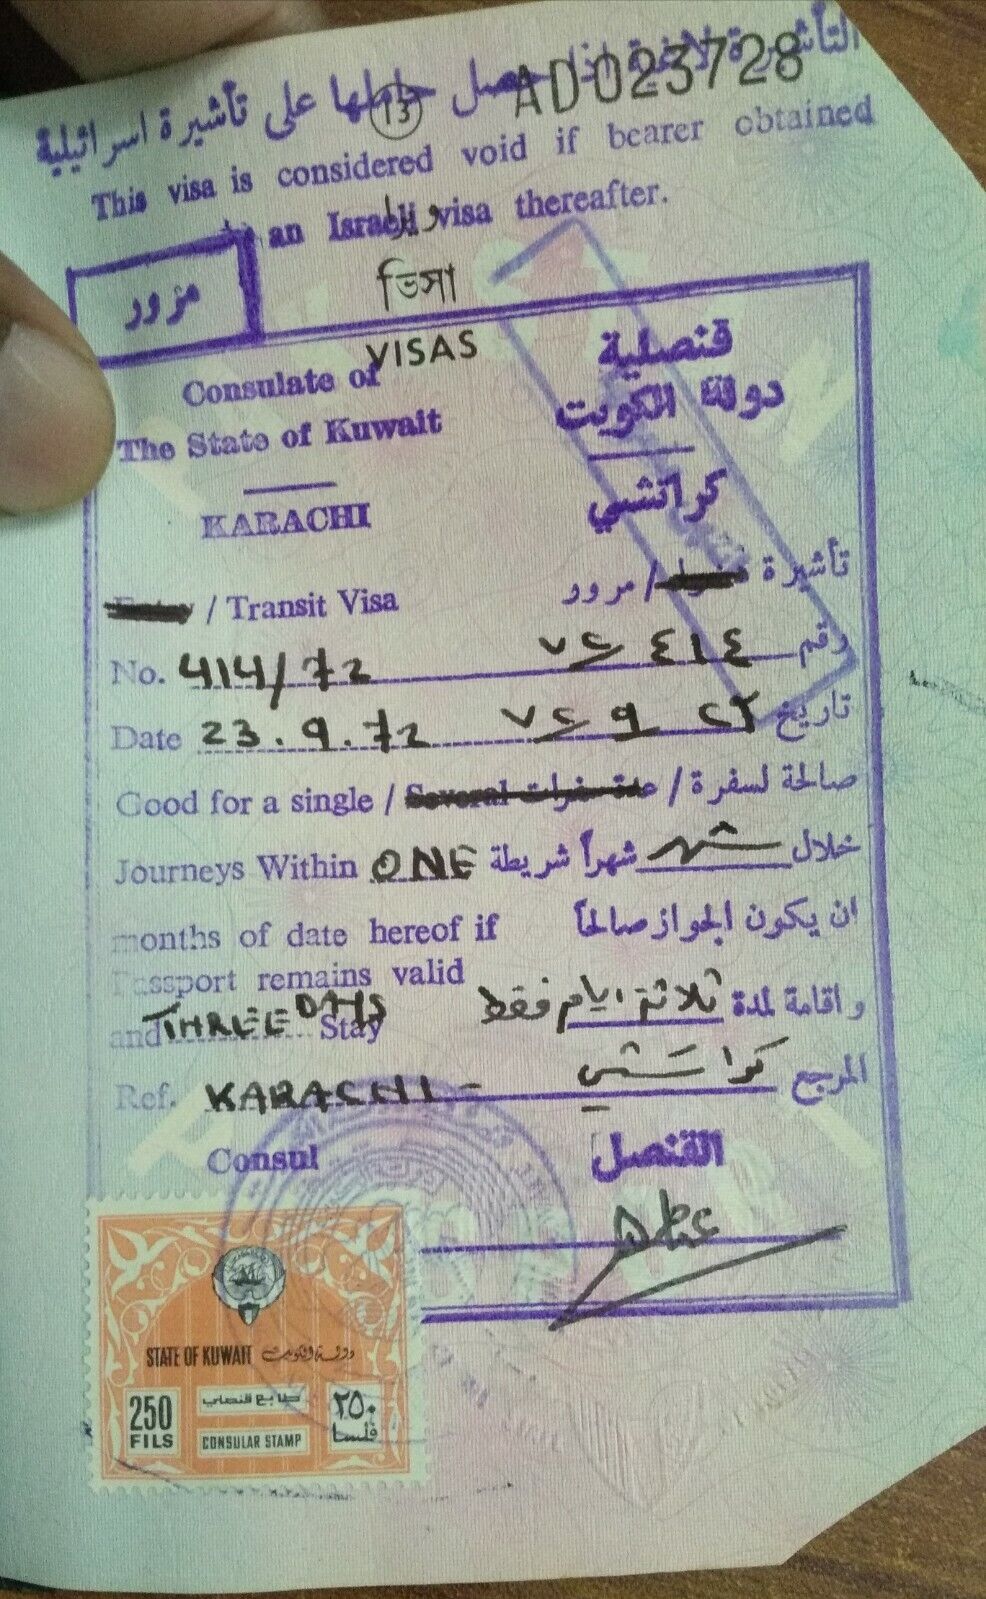 التأشيرة لاغية اذا حصل حاملها على تأشيرة اسرائيلية
AD023728
13
This visa is considered void if bearer obtained
an Israeli visa thereafter.
ویزا
ভিসা
VISAS
مرور
Consulate of
The State of Kuwait
KARACHI
قنصلية
دولة الكويت
كراتشي
/ Transit Visa
تأشيرة / مرور
No. 414/72 رقم ٤١٤ ٧٢
Date 23.9.72 تاريخ ٢٣ ٩ ٧٢
Good for a single / Several صالحة لسفرة / عدة سفرات
Journeys Within ONE خلال شهر شهراً شريطة
months of date hereof if ان يكون الجواز صالحاً
Passport remains valid
and THREE DAYS Stay واقامة لمدة ثلاثة ايام فقط
Ref. KARACHI - المرجع كراتشي
Consul القنصل
STATE OF KUWAIT دولة الكويت
250 FILS
طابع قنصلي
CONSULAR STAMP
٢٥٠ فلسا